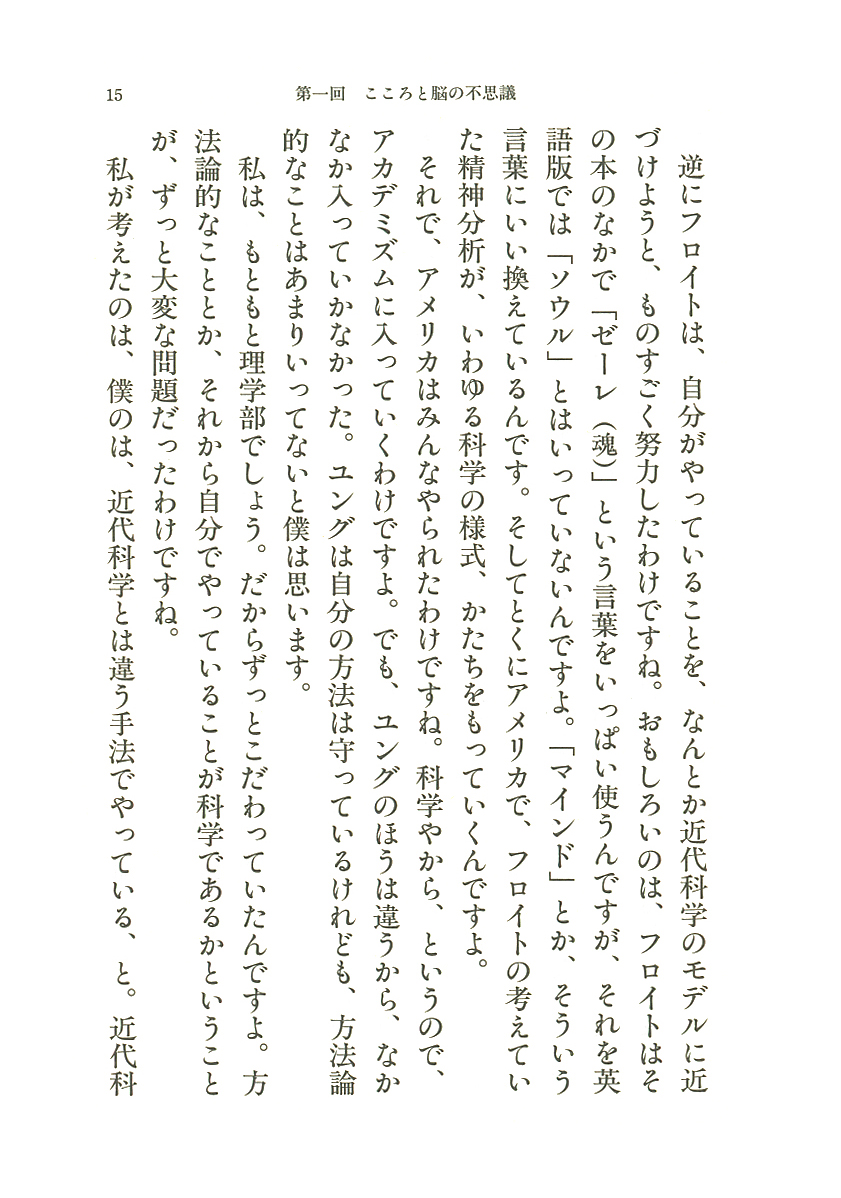 15
第一回　こころと脳の不思議
逆にフロイトは、自分がやっていることを、なんとか近代科学のモデルに近
づけようと、ものすごく努力したわけですね。おもしろいのは、フロイトはそ
の本のなかで「ゼーレ（魂）」という言葉をいっぱい使うんですが、それを英
語版では「ソウル」とはいっていないんですよ。「マインド」とか、そういう
言葉にいい換えているんです。そしてとくにアメリカで、フロイトの考えてい
た精神分析が、いわゆる科学の様式、かたちをもっていくんですよ。
それで、アメリカはみんなやられたわけですね。科学やから、というので、
アカデミズムに入っていくわけですよ。でも、ユングのほうは違うから、なか
なか入っていかなかった。ユングは自分の方法は守っているけれども、方法論
的なことはあまりいってないと僕は思います。
私は、もともと理学部でしょう。だからずっとこだわっていたんですよ。方
法論的なこととか、それから自分でやっていることが科学であるかということ
が、ずっと大変な問題だったわけですね。
私が考えたのは、僕のは、近代科学とは違う手法でやっている、と。近代科